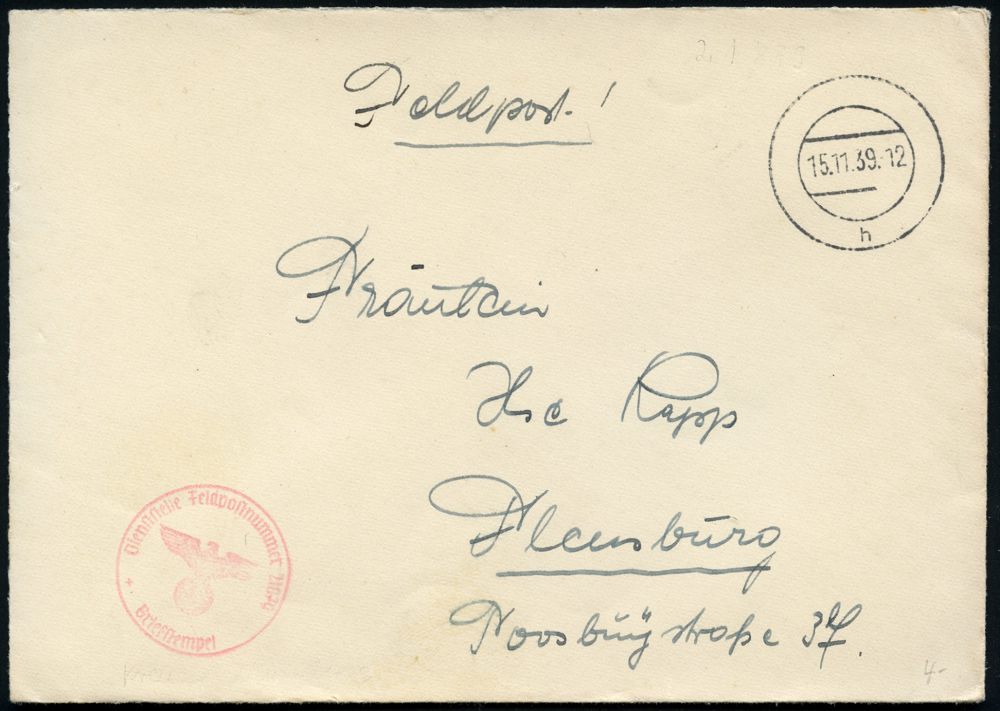 Feldpost!
15.11.39.-12
h
Fräulein
Ilse Rapp
Flensburg
Moosbüystraße
Dienststelle Feldpostnummer
+ Briefstempel
4-